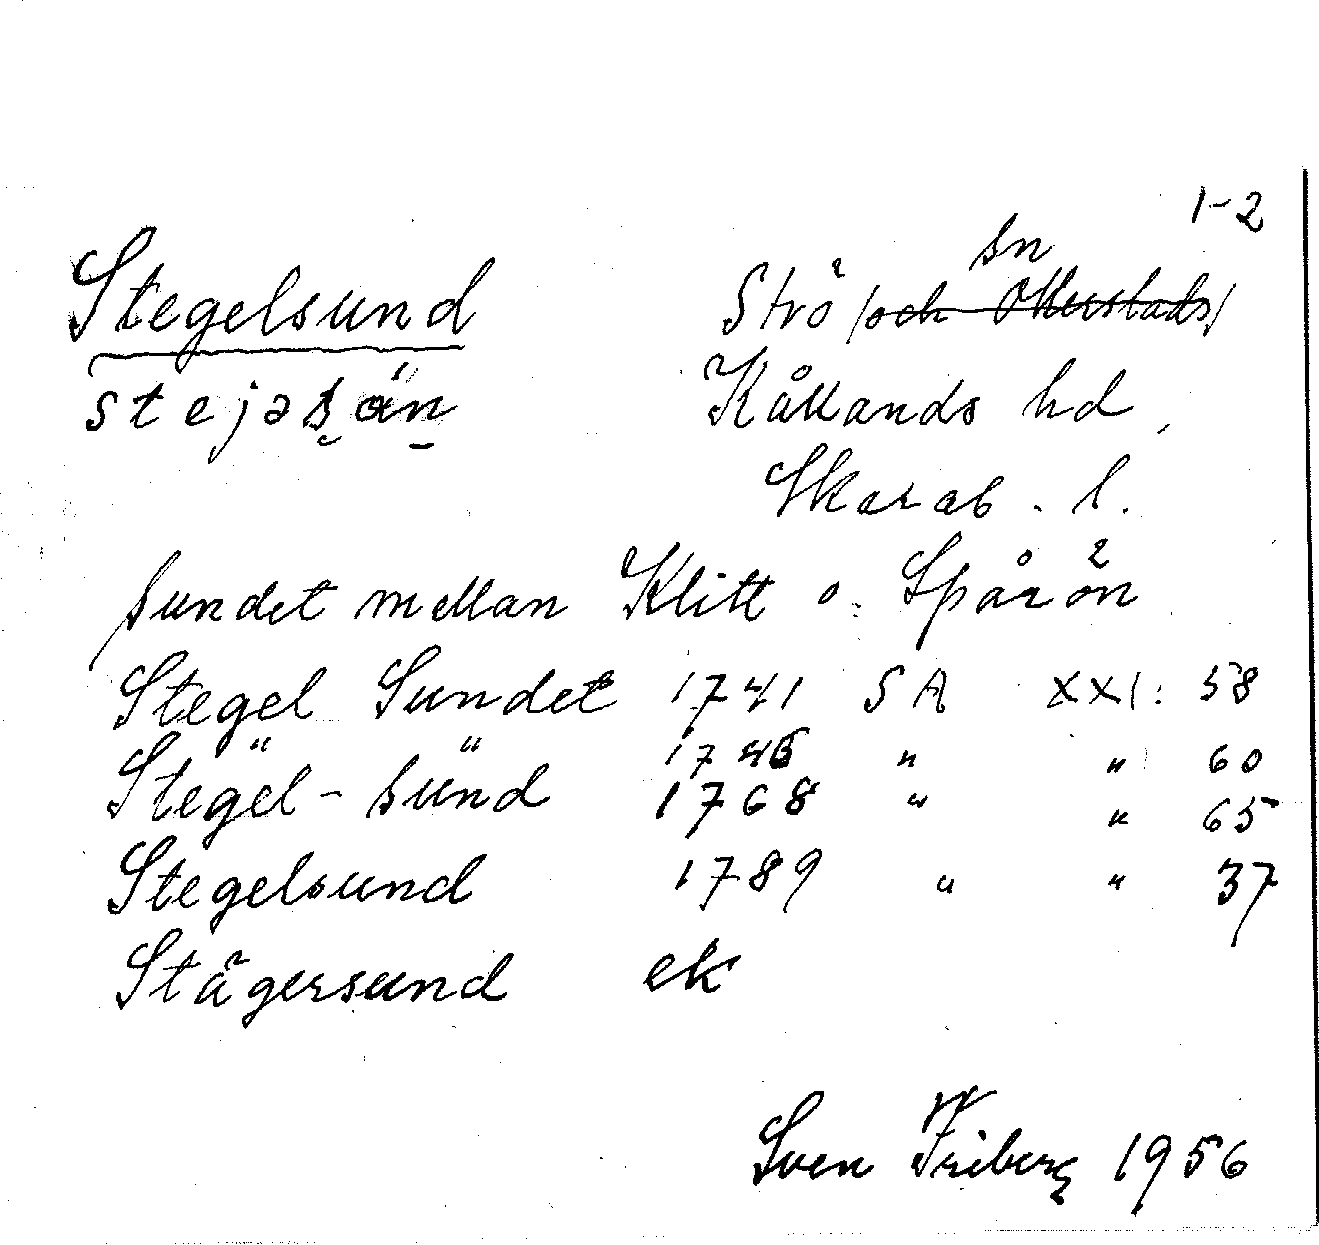 1-2
Stegelsund
Strö sn /och Otterstads/
Kållands hd,
Skarab. l.
sundet mellan Klitt o. Spårön
Stegel Sundet 1741 SA XXI: 58
" " 1746 " " 60
Stegel-sund 1768 " " 65
Stegelsund 1789 " " 37
Stägersund ek
Sven Friberg 1956